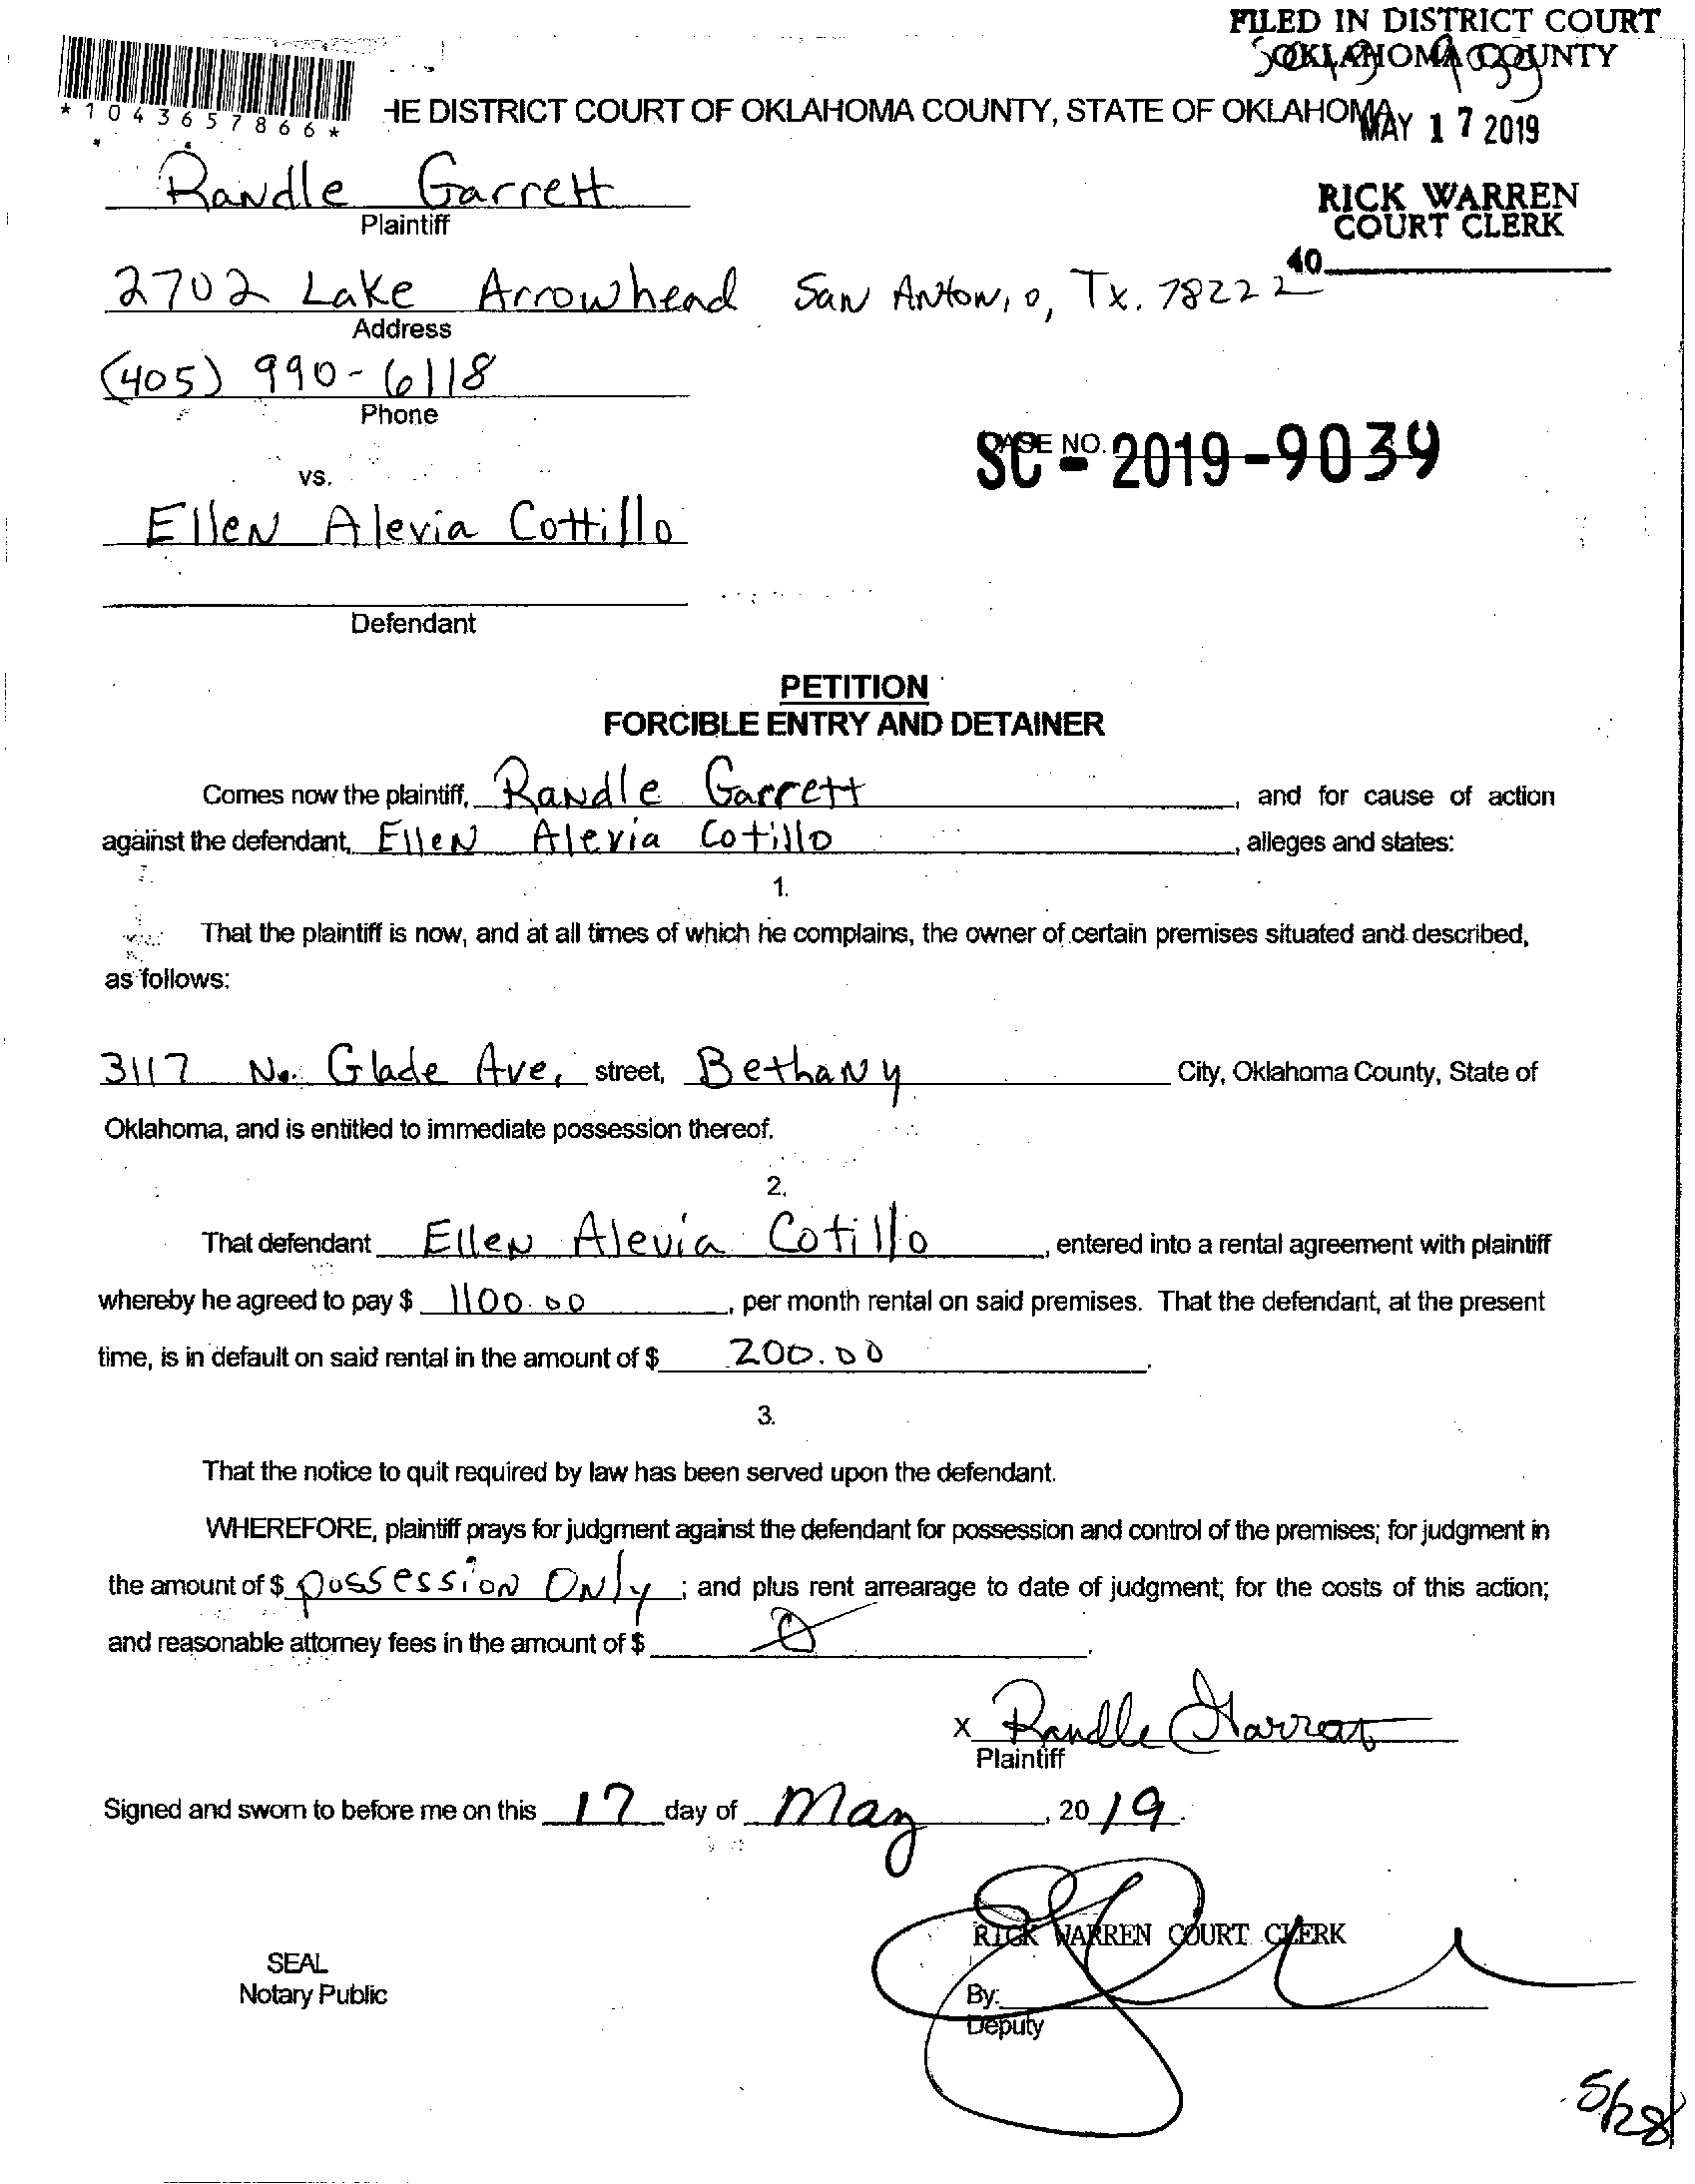 FILED IN DISTRICT COURT
OKLAHOMA COUNTY
*1043657866*
HE DISTRICT COURT OF OKLAHOMA COUNTY, STATE OF OKLAHOMA
MAY 17 2019
Randle Garrett
Plaintiff
RICK WARREN
COURT CLERK
40
2702 Lake Arrowhead San Antonio, Tx. 78222
Address
(405) 990-6118
Phone
CASE NO.
SC - 2019-9039
vs.
Ellen Alevia Cottillo
Defendant
PETITION
FORCIBLE ENTRY AND DETAINER
Comes now the plaintiff, Randle Garrett, and for cause of action
against the defendant, Ellen Alevia Cotillo, alleges and states:
1.
That the plaintiff is now, and at all times of which he complains, the owner of certain premises situated and described,
as follows:
3117 No. Glade Ave, street, Bethany City, Oklahoma County, State of
Oklahoma, and is entitled to immediate possession thereof.
2.
That defendant Ellen Alevia Cotillo, entered into a rental agreement with plaintiff
whereby he agreed to pay $ 1100.00, per month rental on said premises. That the defendant, at the present
time, is in default on said rental in the amount of $ 200.00.
3.
That the notice to quit required by law has been served upon the defendant.
WHEREFORE, plaintiff prays for judgment against the defendant for possession and control of the premises; for judgment in
the amount of $ possession Only; and plus rent arrearage to date of judgment; for the costs of this action;
and reasonable attorney fees in the amount of $ 0.
x Randle Garrett
Plaintiff
Signed and sworn to before me on this 17 day of May, 2019.
RICK WARREN COURT CLERK
SEAL
Notary Public
By:
Deputy
5/28